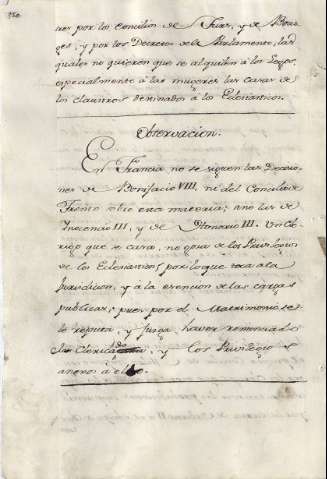 res por los Concilios de Tours, y de Bour
ges, y por los Decretos de el Parlamento, las
quales no quieren que se alquilen à los Legos,
especialmente à las mugeres las casas de
los claustros destinados à los Eclesiasticos.
Observacion.
En Francia no se siguen las Decisio-
nes de Bonifacio VIII, ni del Concilio de
Trento sobre esta materia; sino las de
Inocencio III, y de Honorio III. Un Cle-
rigo que se casa, no goza de los Privilegios
de los Eclesiasticos, por lo que toca à la
Jurisdicion, y à la esencion de las cargas
publicas; pues por el Matrimonio se
le reputa, y juzga, haver renunciado
su Clerica y los Privilegios
anexos à el